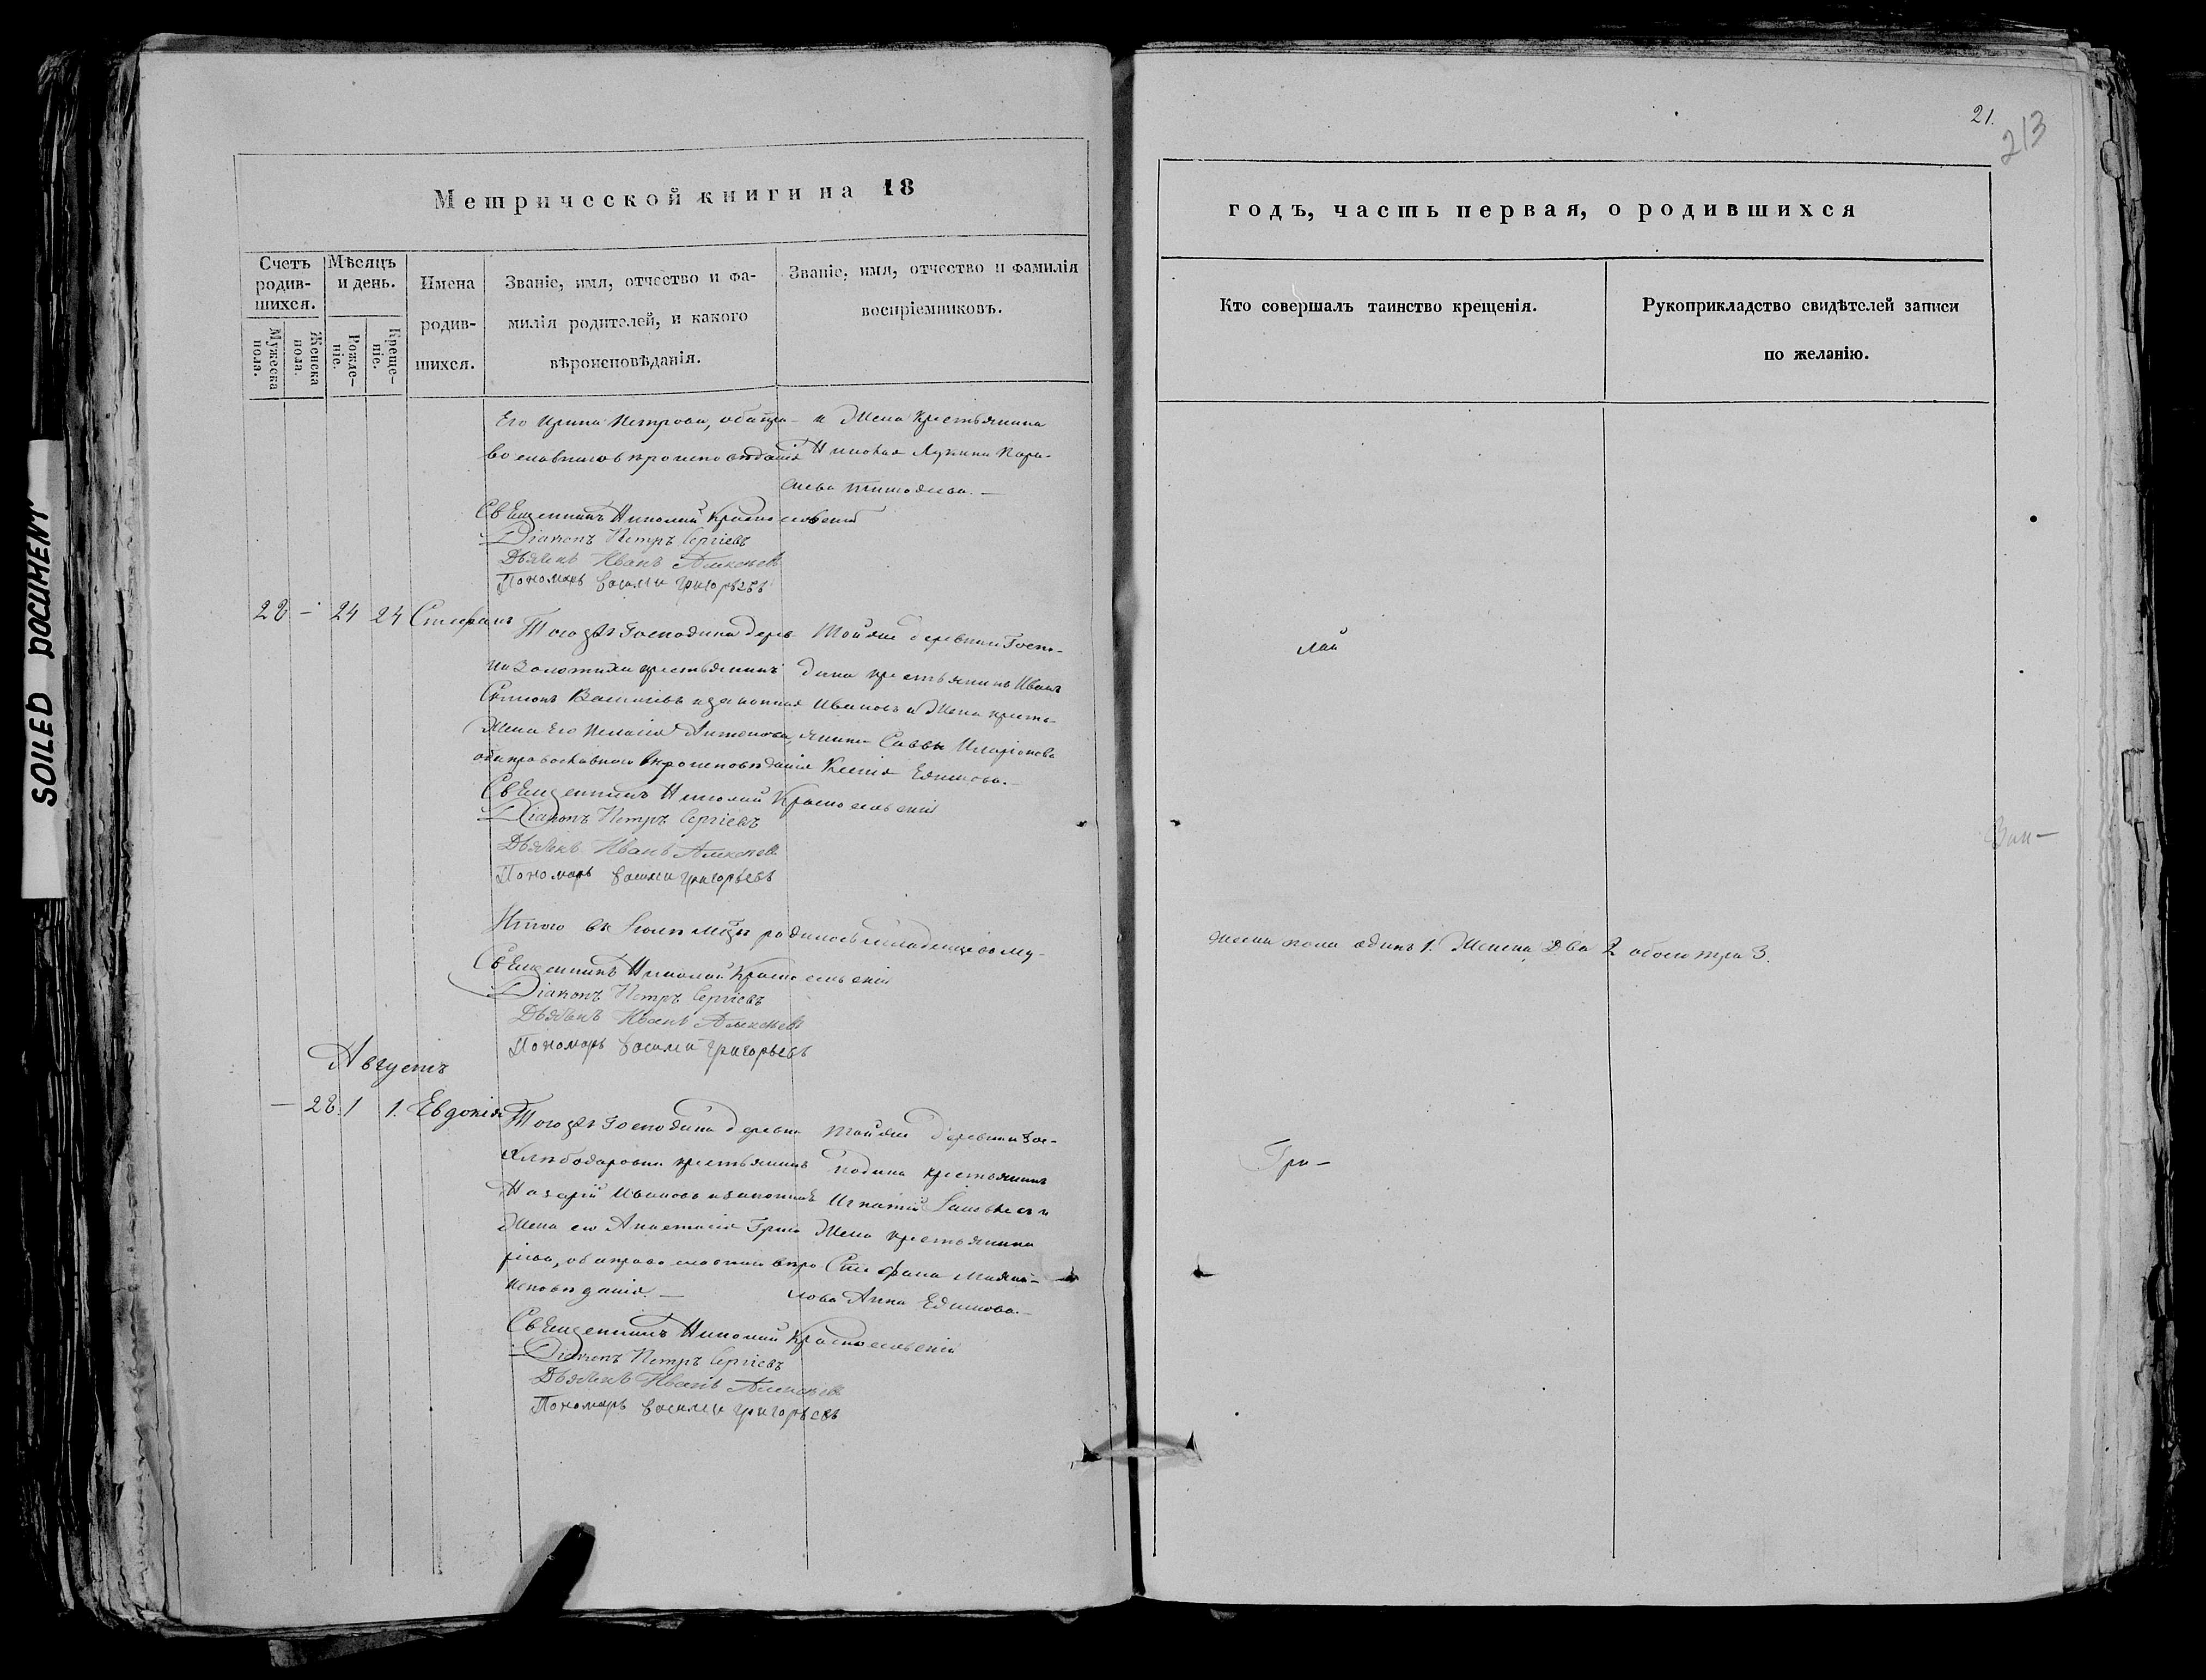 SOILED DOCUMENT
Метрической книги на 18
Счетъ родив-шихся.
Мѣсяцъ и день.
Имена родив-шихся.
Званіе, имя, отчество и фа-
милія родителей, и какого
вѣроисповѣданія.
Званіе, имя, отчество и фамилія
воспріемниковъ.
Мужеска пола.
Женска пола.
Рожде-ніе.
Креще-ніе.
Его Ирина Петрова, оба пра- и Жена крестьянина
вославнаго вѣроисповѣданія
Лукина Пара-
Священникъ Николай Красносельскій
Діаконъ Петръ Сергіевъ
Дьячекъ Иванъ Алексѣевъ
Пономарь Василій Григорьевъ
22 – 24 24 Стефанъ Тогожъ Господина дерев- Тойже деревни Госпо-
крестьянинъ дина крестьянинъ Иванъ
Василіевъ и законная Ивановъ и Жена кресть-
Жена Его Пелагія Антонова, янина Саввы Иларіонова
оба православнаго вѣроисповѣданія Ксенія Ефимова.
Священникъ Николай Красносельскій
Діаконъ Петръ Сергіевъ
Дьячекъ Иванъ Алексѣевъ
Пономарь Василій Григорьевъ
Итого въ Іюлѣ мцѣ родилось младенцевъ му-
Священникъ Николай Красносельскій
Діаконъ Петръ Сергіевъ
Дьячекъ Иванъ Алексѣевъ
Пономарь Василій Григорьевъ
Августъ
– 22. 1 1. Евдокія Тогожъ Господина деревни Тойже деревни Гос-
крестьянинъ подина крестьянинъ
Назарій Ивановъ и законная Игнатій
Жена его Анастасія Григо- Жена крестьянина
рьева, оба православнаго вѣро- Стефана
исповѣданія. – лова Анна Ефимова. –
Священникъ Николай Красносельскій
Діаконъ Петръ Сергіевъ
Дьячекъ Иванъ Алексѣевъ
Пономарь Василій Григорьевъ
21.
213
годъ, часть первая, о родившихся
Кто совершалъ таинство крещенія.
Рукоприкладство свидѣтелей записи
по желанію.
лай
жеска пола одинъ 1. Женска два 2 обоего три 3.
Гри-